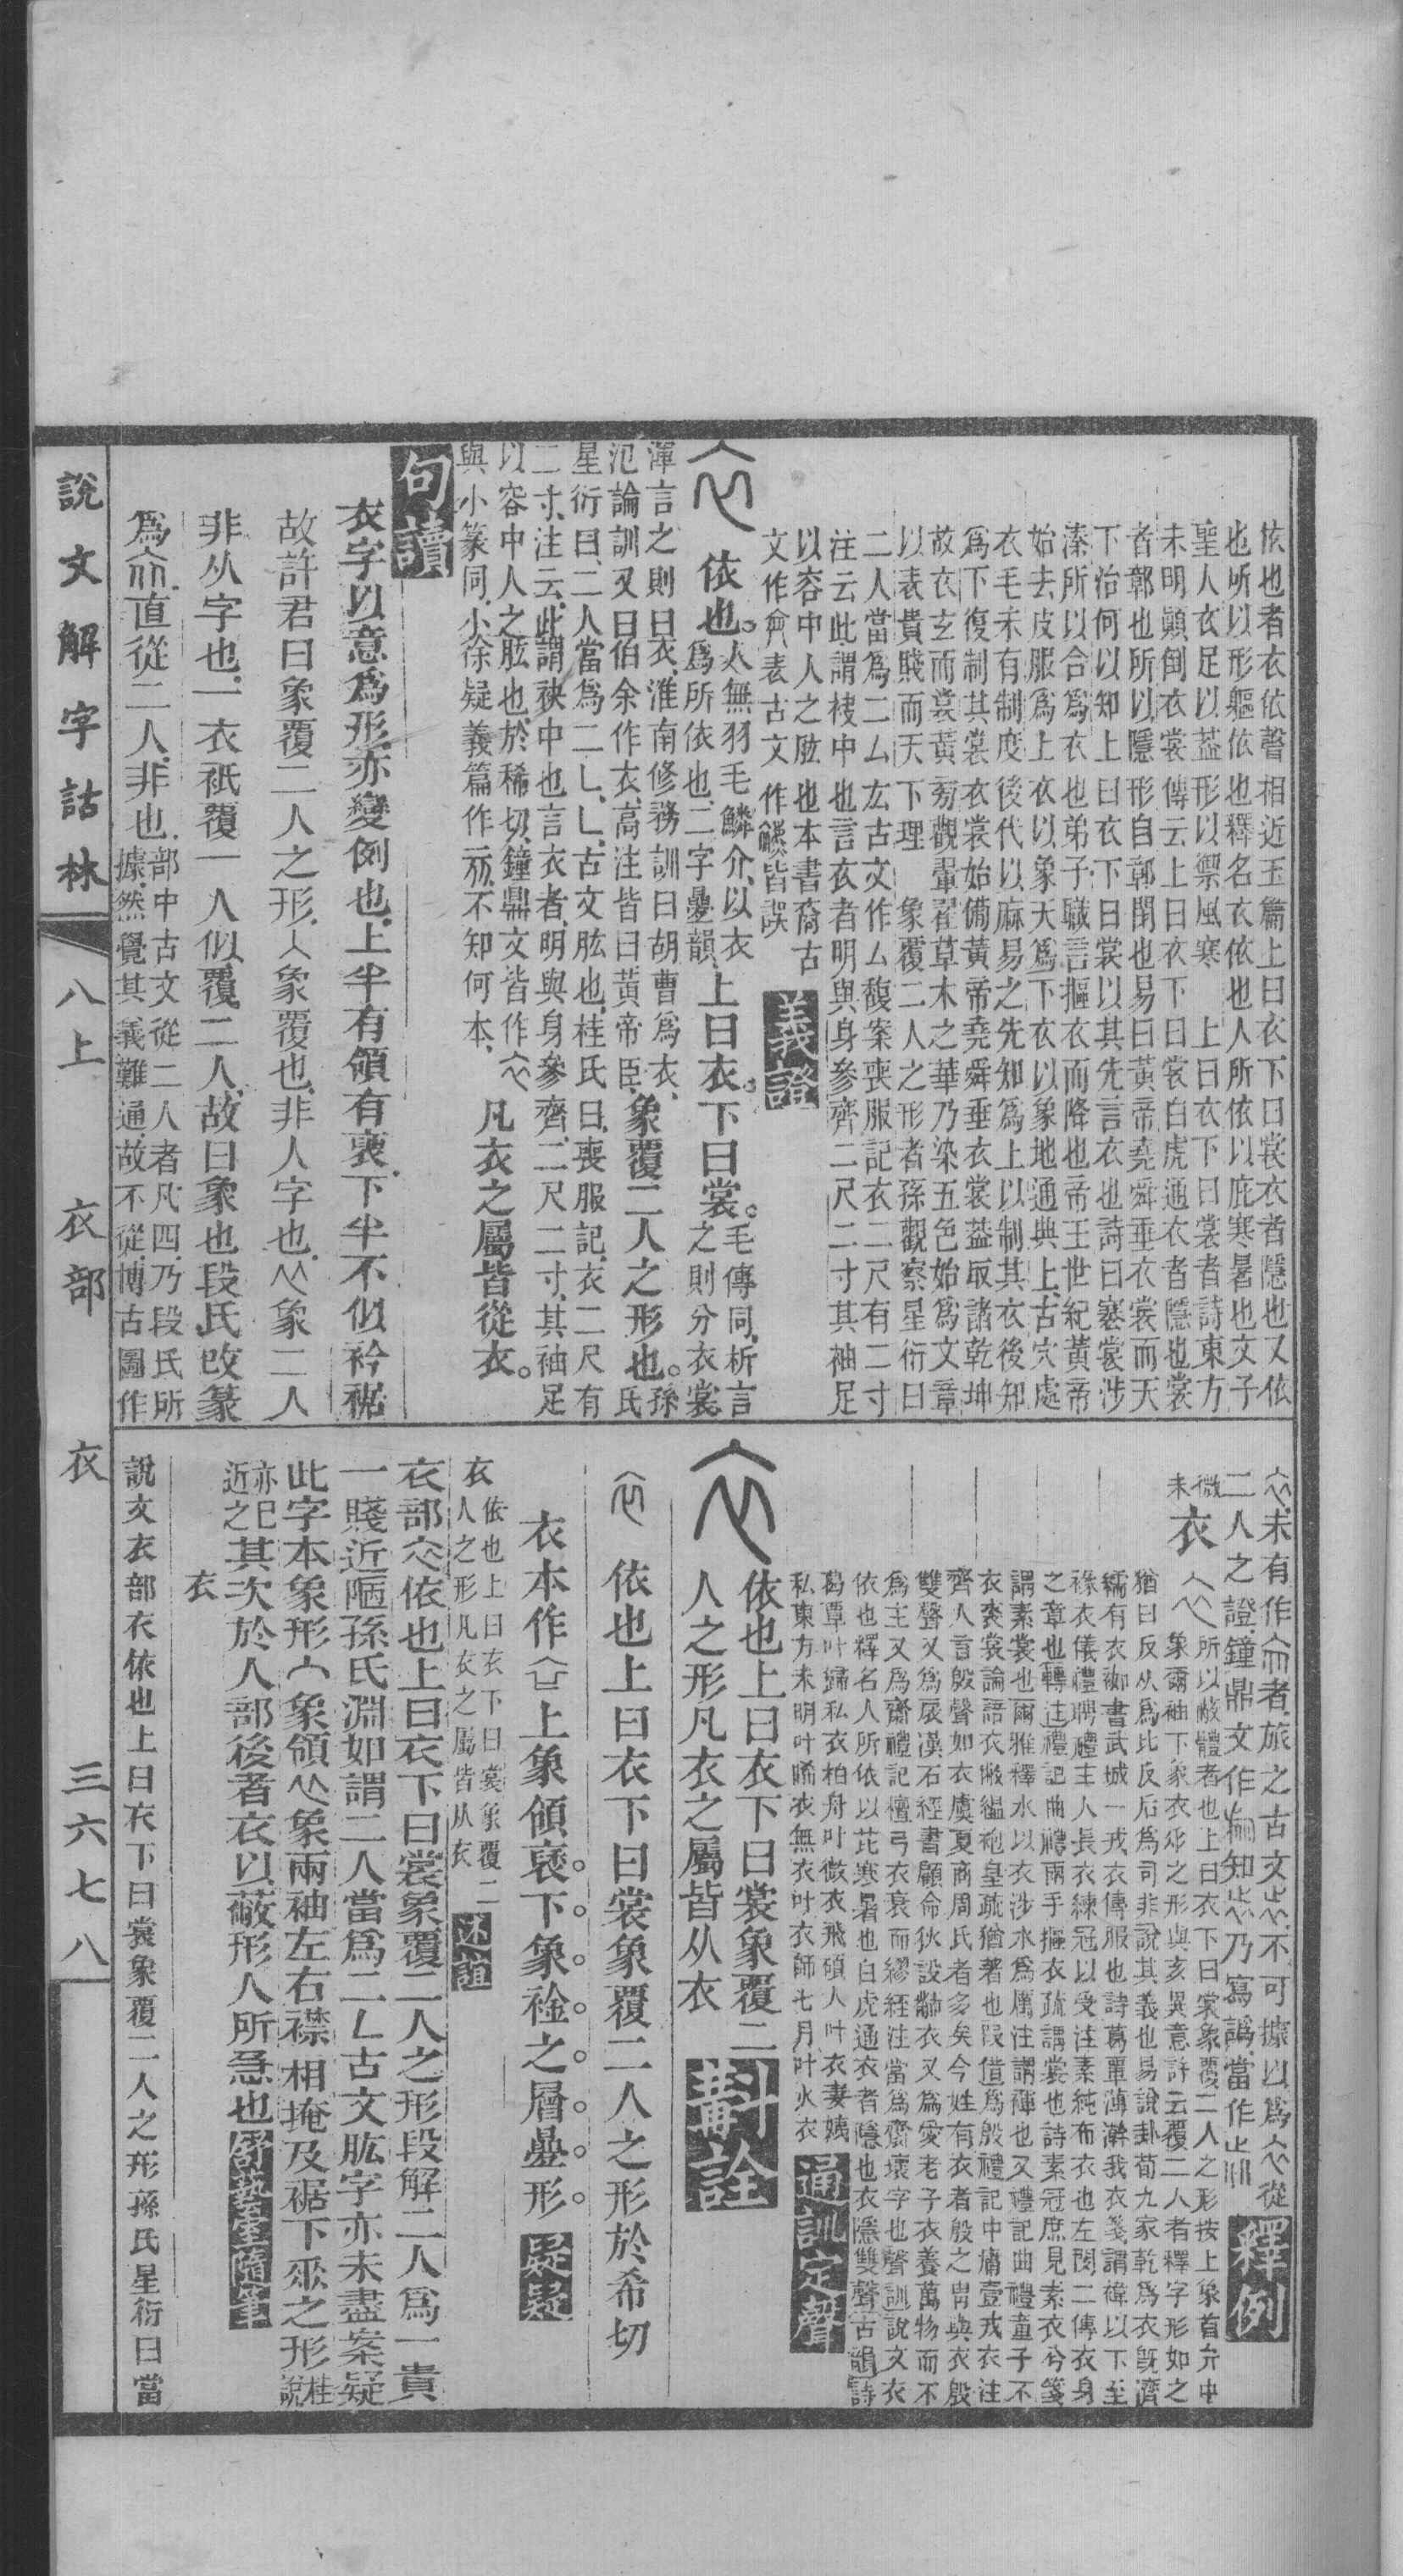 依也者衣依聲相近玉篇上曰衣下曰裳衣者隱也又依
也所以形軀依也釋名衣依也人所依以庇寒暑也文子
聖人衣足以蓋形以禦風寒　上曰衣下曰裳者詩東方
未明顚倒衣裳傳云上曰衣下曰裳白虎通衣者隱也裳
者鄣也所以隱形自鄣閉也易曰黃帝堯舜垂衣裳而天
下治何以知上曰衣下曰裳以其先言衣也詩曰褰裳涉
溱所以合爲衣也弟子職言摳衣而降也帝王世紀黃帝
始去皮服爲上衣以象天爲下衣以象地通典上古穴處
衣毛未有制度後代以麻易之先知爲上以制其衣後知
爲下復制其裳衣裳始備黃帝堯舜垂衣裳蓋取諸乾坤
故衣玄而裳黃菊觀翬翟草木之華乃染五色始爲文章
以表貴賤而天下理　象覆二人之形者孫觀察星衍曰
二人當爲二厶厷古文作厶馥案喪服記衣二尺有二寸
注云此謂袂中也言衣者明與身參齊二尺二寸其袖足
以容中人之肱也本書裔古
文作表古文作皆誤
義證
依也。人無羽毛鱗介、以衣
爲所依也、二字疊韻、
上曰衣。下曰裳。毛傳同、析言
之則分衣裳、
渾言之則曰衣、淮南修務訓曰胡曹爲衣、
氾論訓又曰伯余作衣、高注皆曰黃帝臣、
象覆二人之形也。孫氏
星衍曰、二人當爲二𠃊、𠃊、古文肱也、桂氏曰、喪服記、衣二尺有
二寸、注云、此謂袂中也言衣者、明與身參齊、二尺二寸、其袖足
以容中人之肱也、於稀切、鐘鼎文皆作
與小篆同、小徐疑義篇作不知何本、
凡衣之屬皆從衣。
句讀
衣字以意爲形、亦變例也、上半有領有褎、下半不似衿裾
故許君曰象覆二人之形、象覆也、非人字也、象二人
非从字也、一衣祇覆一人、似覆二人、故曰象也、段氏改篆
爲、直從二人、非也、部中古文從二人者凡四、乃段氏所
據、然覺其義難通、故不從、博古圖作
未有作者、旅之古文、不可據以爲從
二人之證、鐘鼎文作知乃寫譌、當作
釋例
微
未
衣
所以蔽體者也上曰衣下曰裳象覆二人之形按上象首弁中
象兩袖下象衣之形與亥異意許云覆二人者釋字形如之
猶曰反从爲比反后爲司非說其義也易說卦荀九家乾爲衣旣濟
繻有衣袽書武城一戎衣傳服也詩葛覃薄澣我衣箋謂褘以下至
褖衣儀禮聘禮主人長衣練冠以受注素純布衣也左閔二傳衣身
之章也轉注禮記曲禮兩手摳衣疏謂裳也詩素冠庶見素衣兮箋
謂素裳也爾雅釋水以衣涉水爲厲注謂褌也又禮記曲禮童子不
衣裘裳論語衣敝縕袍皇疏猶著也叚借爲殷禮記中庸壹戎衣注
齊人言殷聲如衣虞夏商周氏者多矣今姓有衣者殷之冑與衣殷
雙聲又爲扆漢石經書顧命狄設黼衣又爲愛老子衣養萬物而不
爲主又爲齊禮記檀弓衣衰而繆絰注當爲齊壞字也聲訓說文衣
依也釋名人所依以芘寒暑也白虎通衣者隱也衣隱雙聲古韻詩
葛覃叶歸私衣柏舟叶微衣飛碩人叶衣妻姨
私東方未明叶晞衣無衣叶衣師七月叶火衣
通訓定聲
依也上曰衣下曰裳象覆二
人之形凡衣之屬皆从衣
斠詮
依也上曰衣下曰裳象覆二人之形於希切
衣本作上象領褎下象裣之層疊形
疑疑
衣
依也上曰衣下曰裳象覆二
人之形凡衣之屬皆从衣
述誼
衣部依也上曰衣下曰裳象覆二人之形段解二人爲一貴
一賤近陋孫氏淵如謂二人當爲二𠃊古文肱字亦未盡案疑
此字本象形象領象兩袖左右襟相掩及裾下之形桂說
亦已
近之
其次於人部後者衣以蔽形人所急也
舒蓺室隨筆
衣
說文衣部衣依也上曰衣下曰裳象覆二人之形孫氏星衍曰當
說文解字詁林
八上
衣部
衣
三六七八